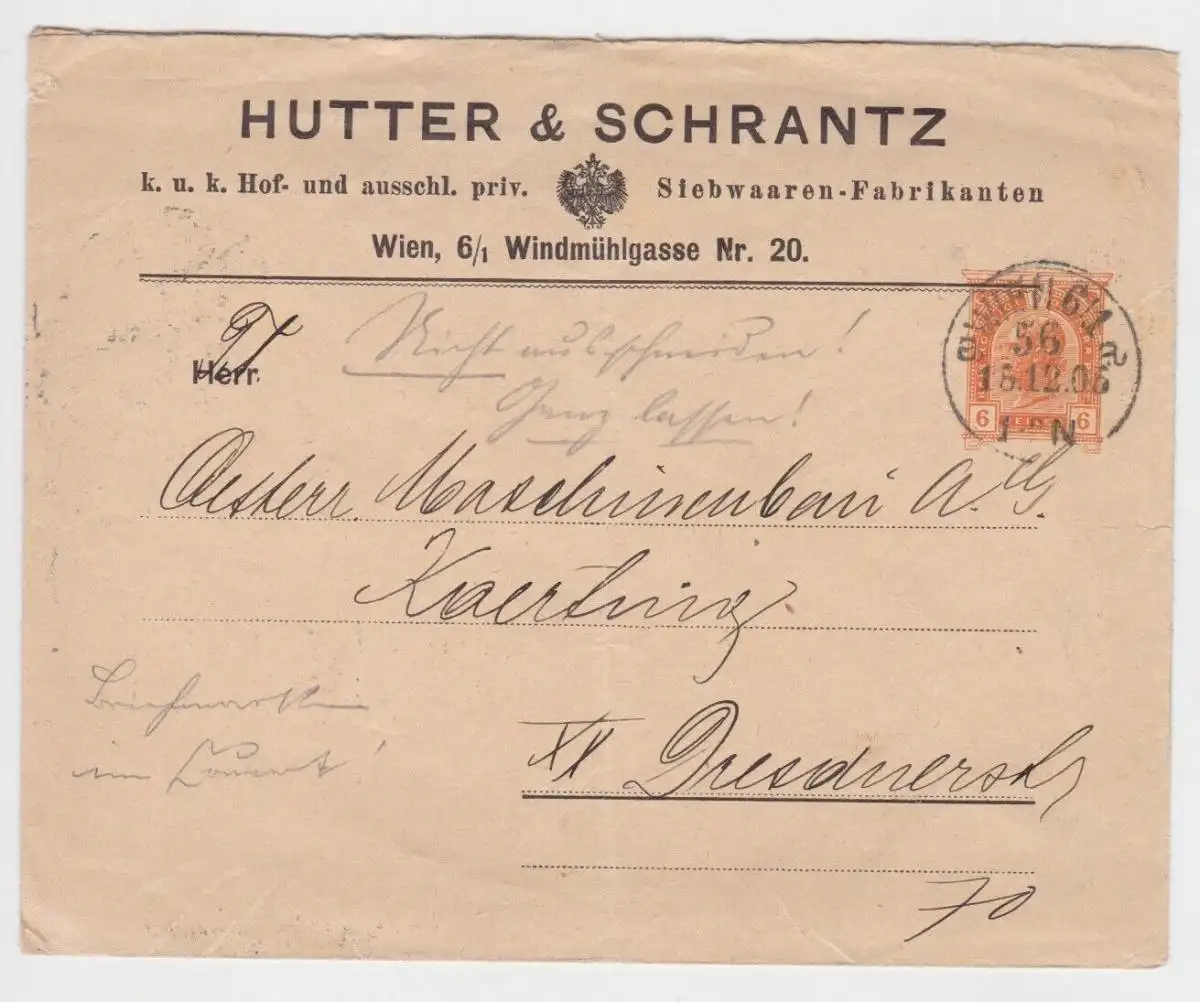 HUTTER & SCHRANTZ
k. u. k. Hof- und ausschl. priv. Siebwaaren-Fabrikanten
Wien, 6/1 Windmühlgasse Nr. 20.
56
15.12.08
N
6 6
Herr
Nicht ausschneiden!
Ganz lassen!
Oesterr. Maschinenbau A. G.
Koerting
XX Dresdnerstr
70
Briefmarke
im Couvert!